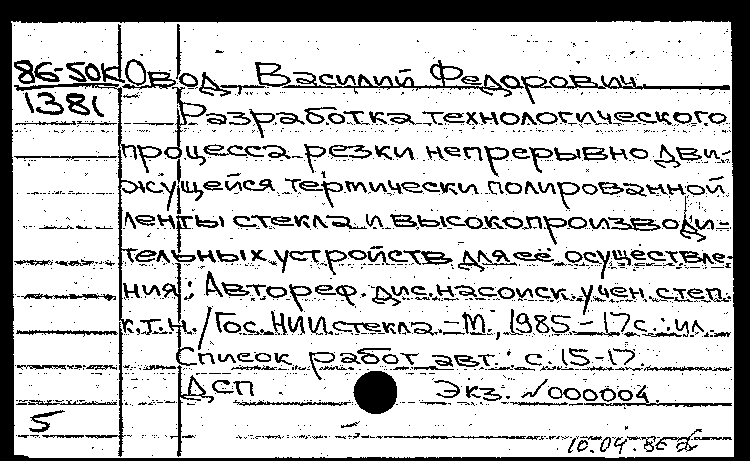 86-50к Овод, Василий Федорович.
1381 Разработка технологического
процесса резки непрерывно дви-
жущейся термически полированной
ленты стекла и высокопроизводи-
тельных устройств для её осуществле-
ния: Автореф. дис. на соиск. учен. степ.
к.т.н. / Гос. НИИ стекла. - М., 1985. - 17 с.: ил.
Список работ авт.: с. 15-17.
ДСП Экз. №000004.
5
10.04.86